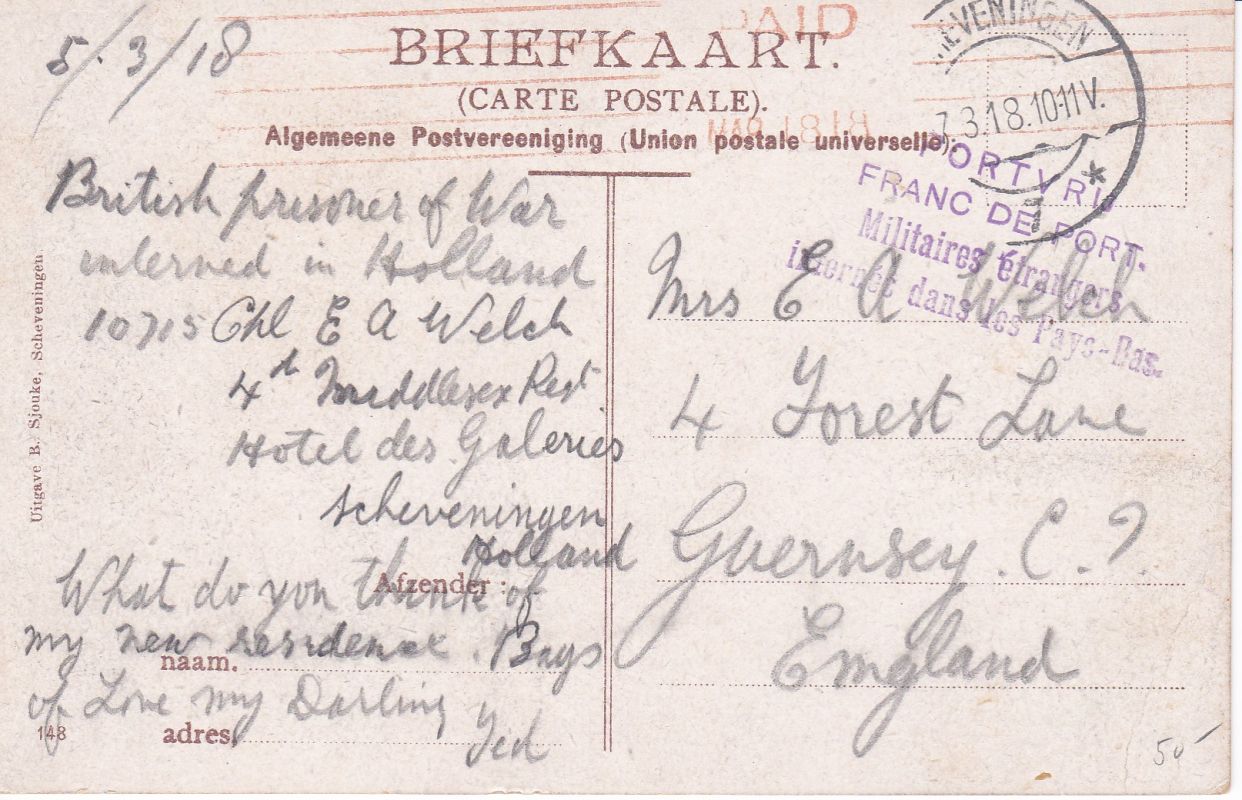 5/3/18
PAID
BRIEFKAART.
(CARTE POSTALE).
Algemeene Postvereeniging (Union postale universelle).
EVENINGEN
7.3.18.10-11V.
PORTVRIJ
FRANC DE PORT.
Militaires étrangers
internés dans les Pays-Bas.
British prisoner of War
interned in Holland
10715 Chl E A Welch
4th Middlesex Regt.
Hotel des Galeries
Scheveningen
Holland
What do you think of
my new residence. Bags
of Love my Darling
Ted
Afzender:
naam.
adres.
148
Uitgave B. Sjouke, Scheveningen
Mrs E A Welch
4 Forest Lane
Guernsey. C. I.
England
50